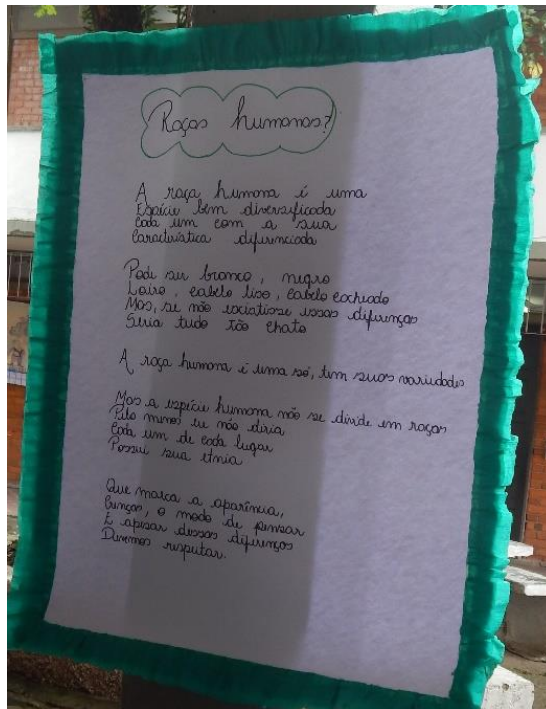 Raças humanas?
A raça humana é uma
Espécie bem diversificada
Cada um com a sua
Característica diferenciada
Pode ser branco, negro
Loiro, cabelo liso, cabelo cacheado
Mas, se não existisse essas diferenças
Seria tudo tão chato
A raça humana é uma só, tem suas variedades
Mas a espécie humana não se divide em raças
Pelo menos eu não diria
Cada um de cada lugar
Possui sua etnia
Que marca a aparência,
Crenças, o modo de pensar
E apesar dessas diferenças
Devemos respeitar.